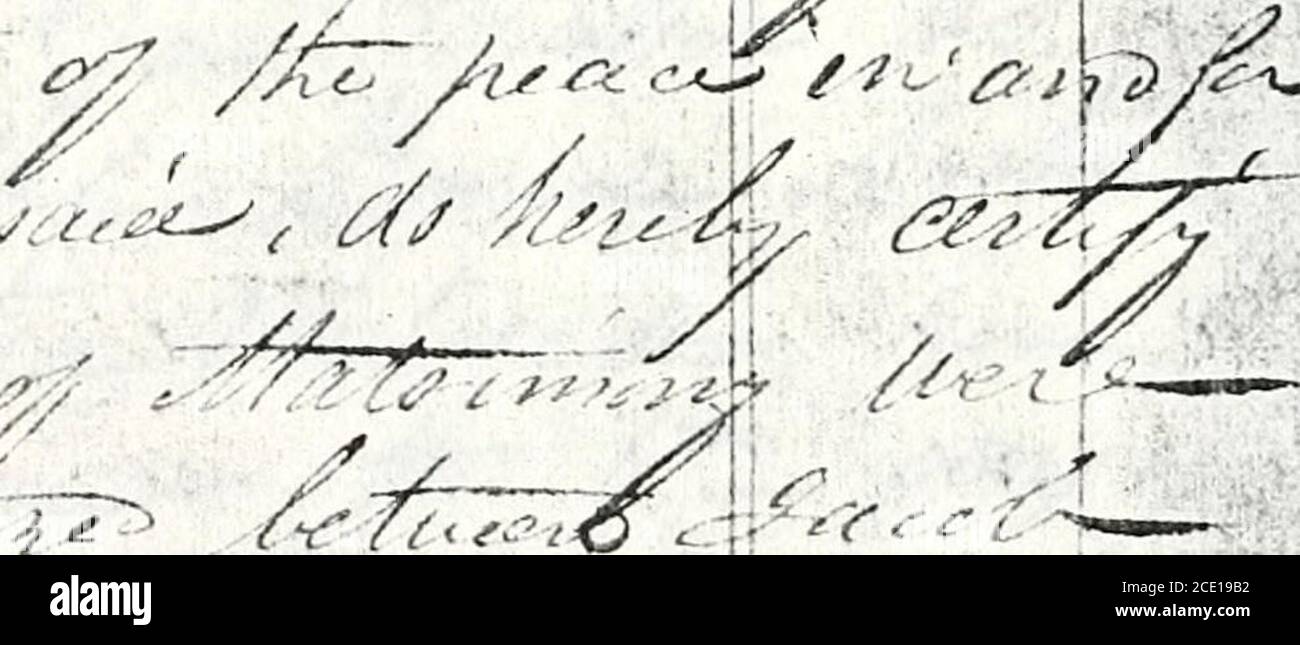 of the peace in and for
said, do hereby certify
of Matrimony were
between Jacob
alamy
Image ID: 2CE19B2
www.alamy.com